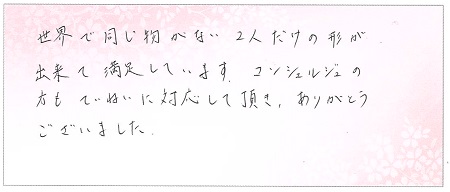 世界で同じ物がない 2人だけの形が
出来て満足しています。コンシェルジュの
方もていねいに対応して頂き、ありがとう
ございました。